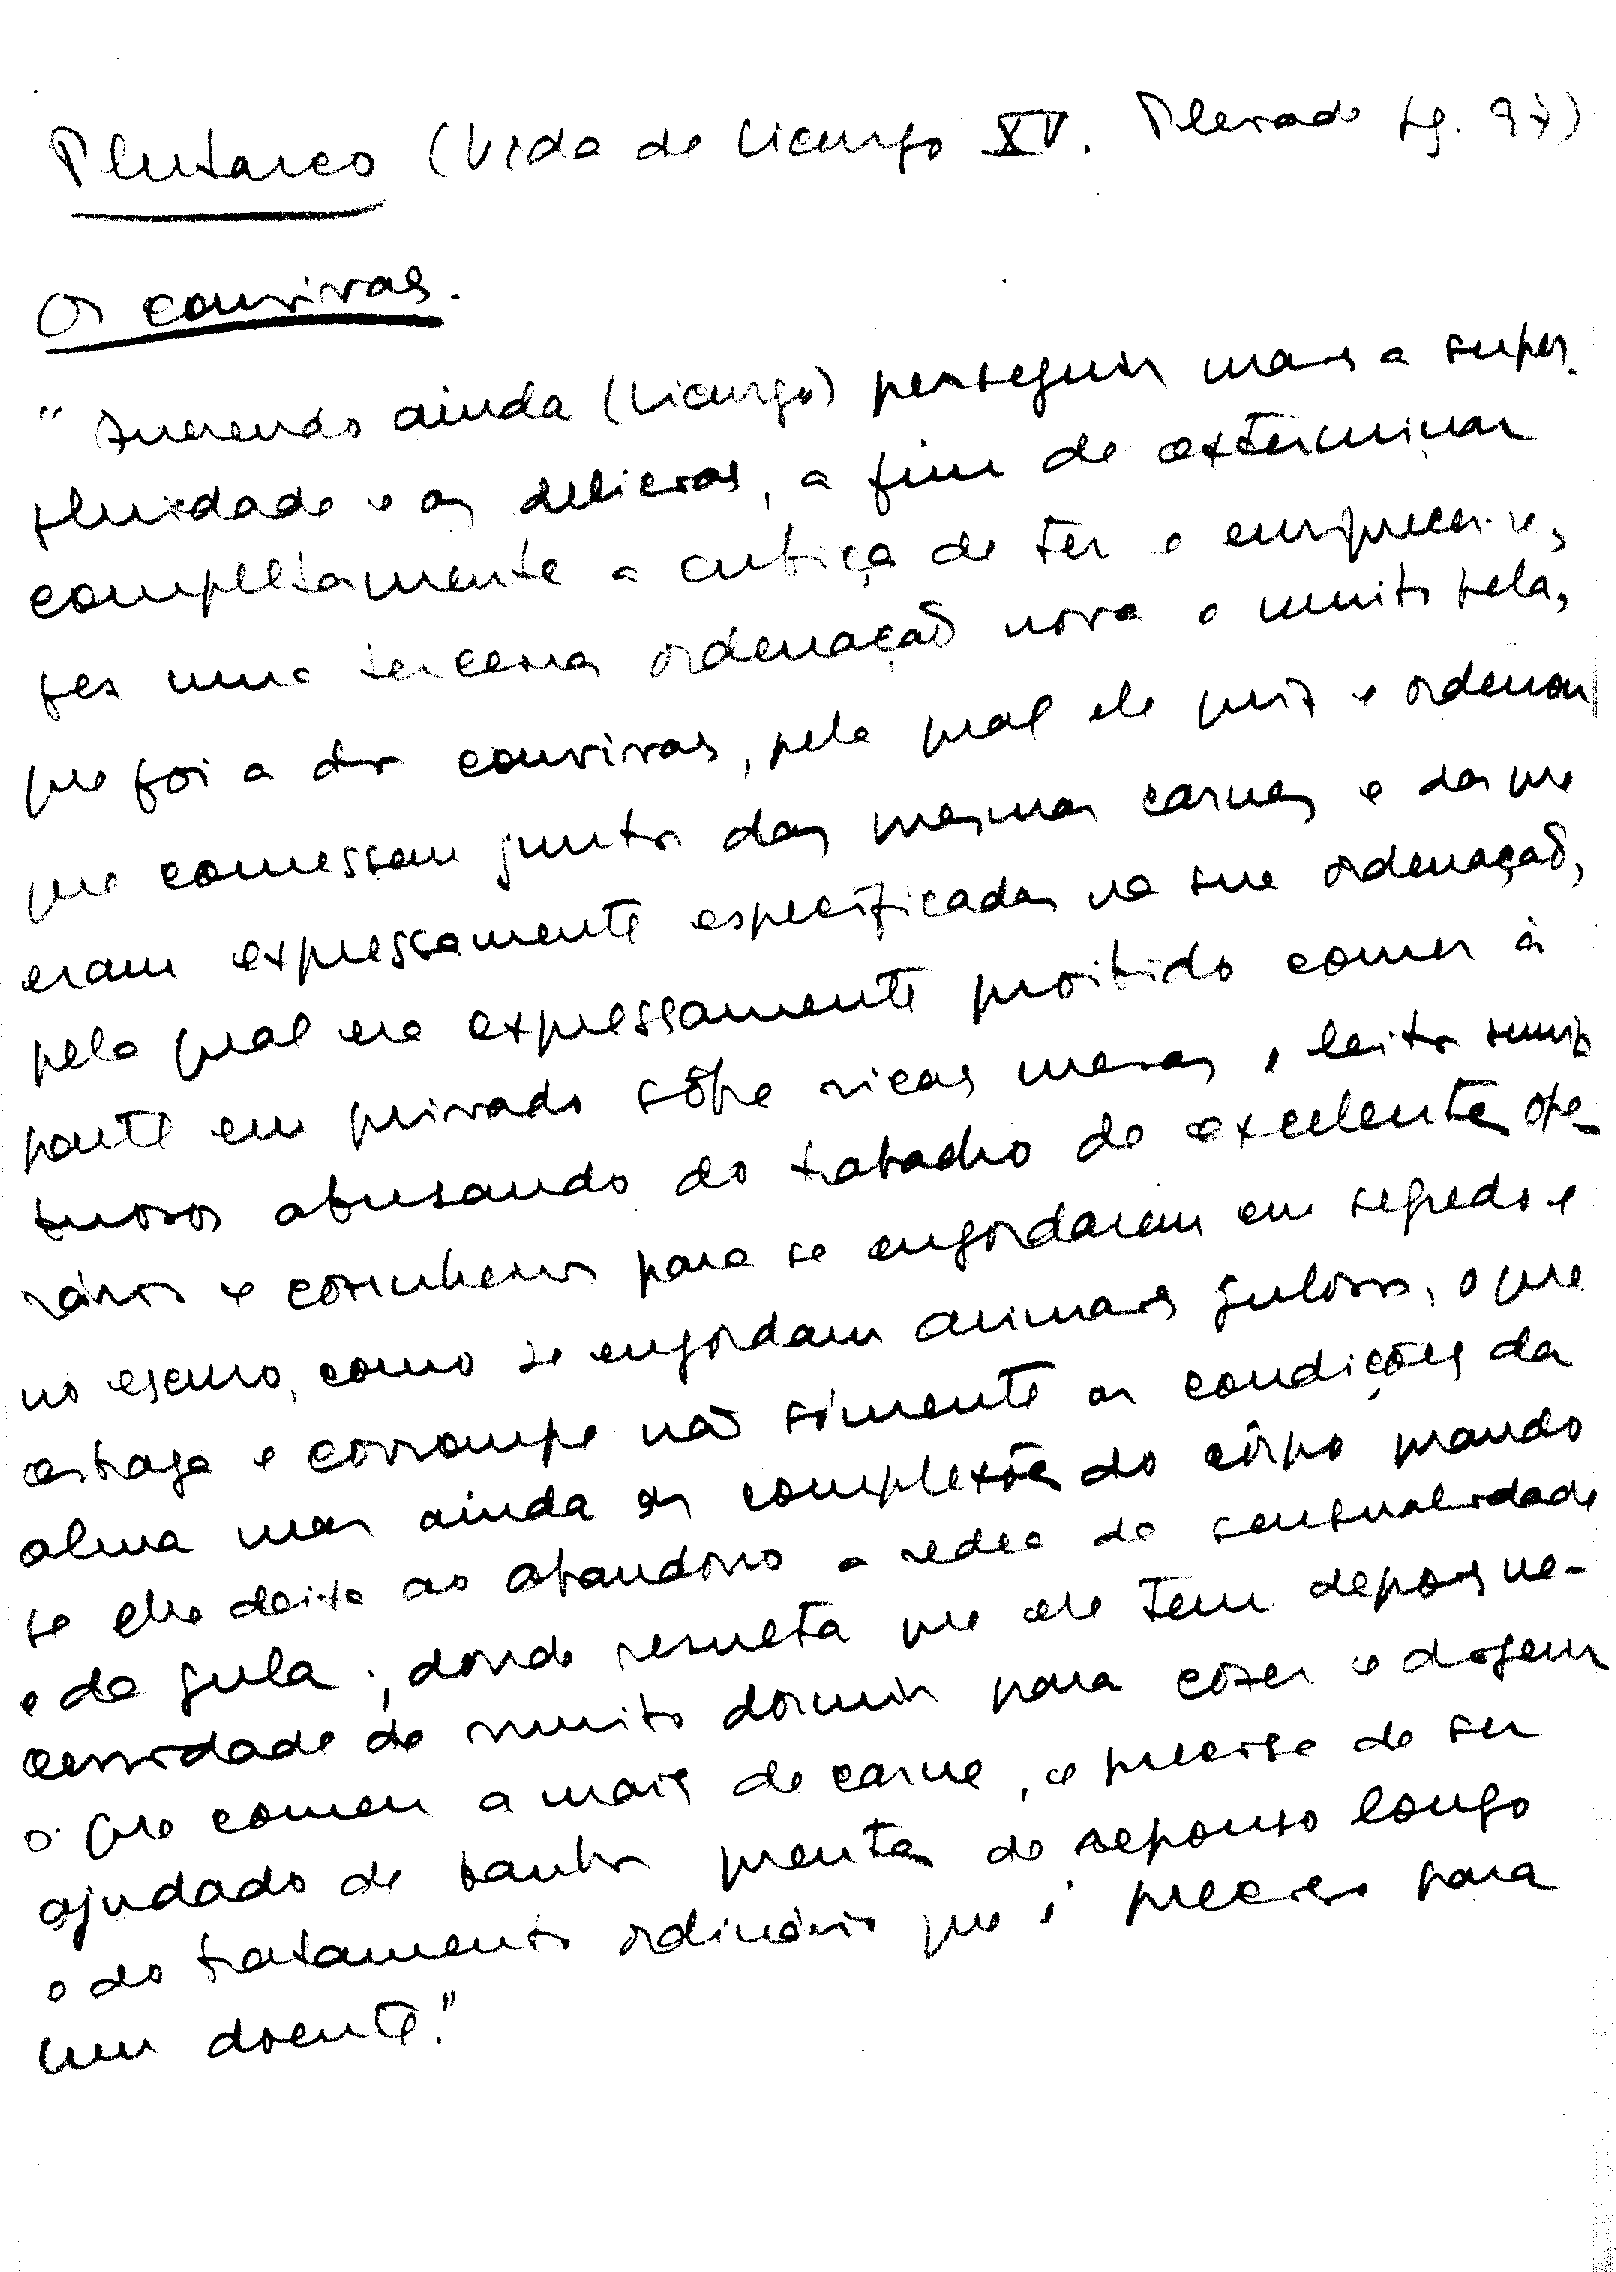 Plutarco (Vida de Licurgo XV. Pleiade pg. 97)
Os convivas.
"Querendo ainda (Licurgo) perseguir mais a super-
fluidade e as delicias, a fim de exterminar
completamente a cubiça de ter e enriquecer-se,
fez uma terceira ordenação nova e muito bela,
que foi a dos convivas, pela qual ele quiz e ordenou
que comessem juntos das mesmas carnes e das que
eram expressamente especificadas na sua ordenação,
pela qual era expressamente proibido comer à
parte em privado sôbre ricas mesas, leitos sump
tuosos abusando do trabalho de excelentes ope-
rários e cosinheiros para se engordarem em segredo e
no escuro, como se engordam animais gulosos, o que
estraga e corrompe não sómente as condições da
alma mas ainda as complexões do côrpo quando
se lhe deixa ao abandono a redea da sensualidade
e da gula; donde resulta que ele tem depois ne-
cessidade de muito dormir para cozer e digerir
o que comeu a mais de carne, e precisa de ser
ajudado de banhos quentes de repouso longo
e do tratamento ordinário que é preciso para
um doente."